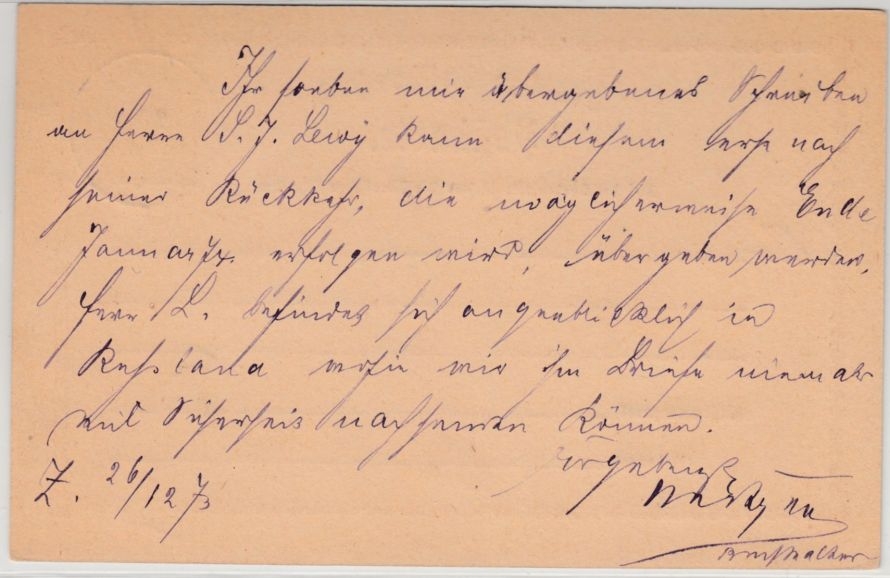 Ihr soeben mir übergebenes Schreiben
an Herrn S. J. Lewy kann diesem erst nach
seiner Rückkehr, die möglicherweise Ende
Januar erfolgen wird, übergeben werden.
Herr L. befindet sich augenblicklich in
Russland wohin wir ihm Briefe niemals
mit Sicherheit nachsenden können.
Ergebenst
Z. 26/12 73